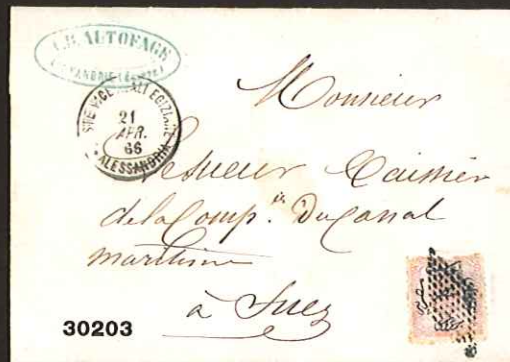 J.B. ALTOFAGE
ALEXANDRIE (ÉGYPTE)
POSTE VICE-REALI EGIZIANE
21
APR.
66
ALESSANDRIA
Monsieur
Lesueur Caissier
de la Comp.ie du Canal
maritime
à Suez
30203